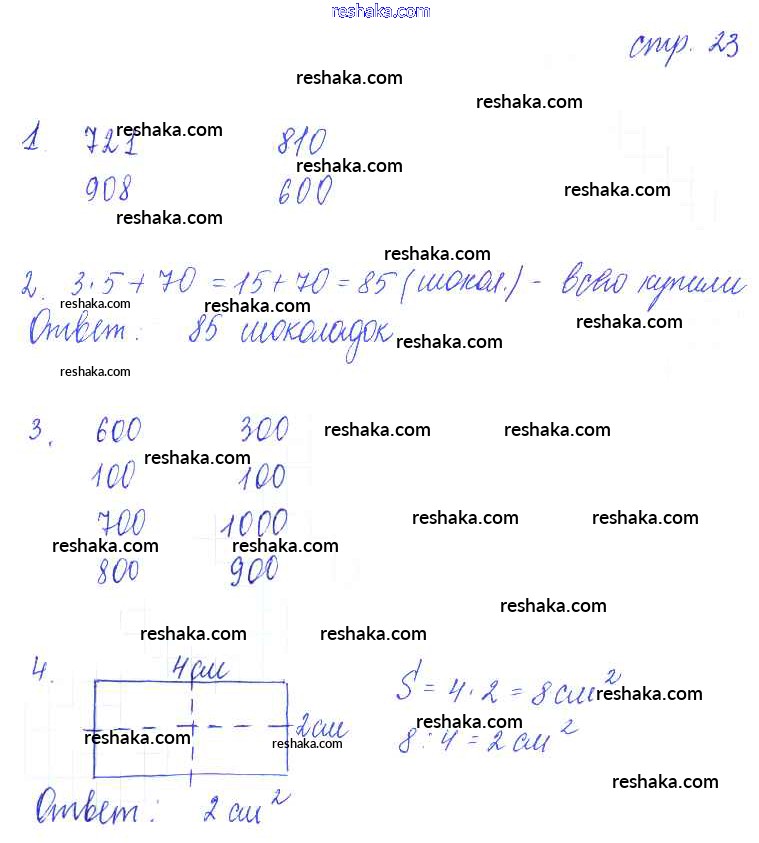 reshaka.com
стр. 23
reshaka.com
reshaka.com
1. 721 810
reshaka.com
reshaka.com
908 600
reshaka.com
reshaka.com
reshaka.com
2. 3·5+70=15+70=85 (шокол.) - всего купили
reshaka.com
reshaka.com
reshaka.com
Ответ: 85 шоколадок
reshaka.com
reshaka.com
3. 600 300
reshaka.com
reshaka.com
reshaka.com
100 100
reshaka.com
reshaka.com
700 1000
reshaka.com
reshaka.com
800 900
reshaka.com
reshaka.com
reshaka.com
4. 4 см
S = 4·2 = 8 см²
reshaka.com
2 см
reshaka.com
8:4 = 2 см²
reshaka.com
reshaka.com
reshaka.com
Ответ: 2 см²